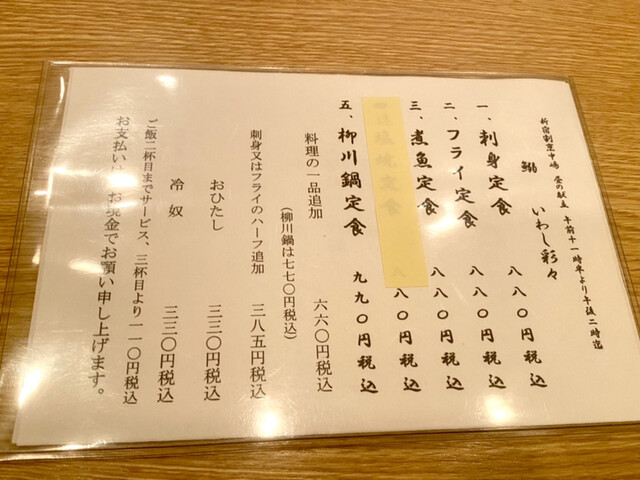 新宿割烹中嶋 昼の献立 午前十一時半より午後二時迄
鰯 いわし彩々
一、刺身定食 八八〇円税込
二、フライ定食 八八〇円税込
三、煮魚定食 八八〇円税込
塩焼定食 八八〇円税込
五、柳川鍋定食 九九〇円税込
料理の一品追加 六六〇円税込
(柳川鍋は七七〇円税込)
刺身又はフライのハーフ追加 三八五円税込
おひたし 三三〇円税込
冷奴 三三〇円税込
ご飯二杯目までサービス、三杯目より一一〇円税込
お支払いは お現金でお願い申し上げます。